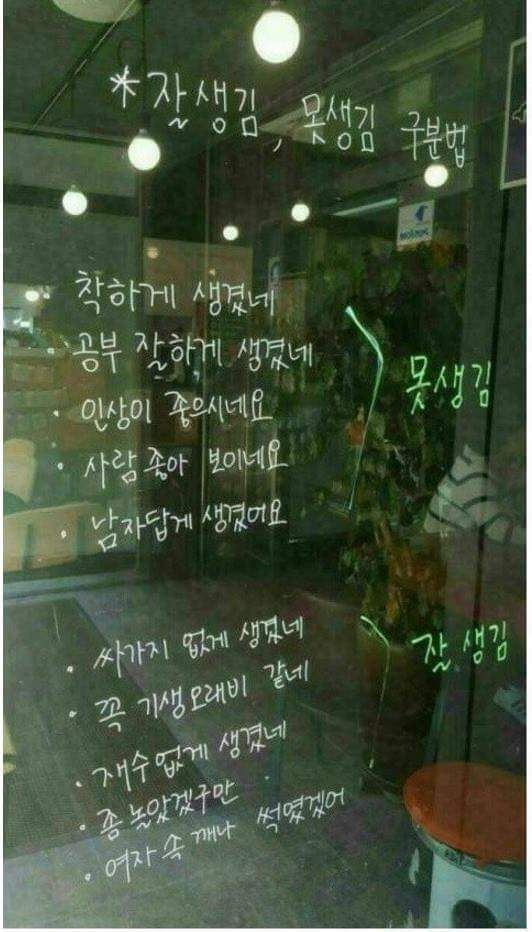 *잘생김, 못생김 구분법
· 착하게 생겼네
· 공부 잘하게 생겼네
· 인상이 좋으시네요
· 사람 좋아 보이네요
· 남자답게 생겼어요
못생김
· 싸가지 없게 생겼네
· 꼭 기생오래비 같네
· 재수 없게 생겼네
· 좀 놀았겠구만
· 여자 속 깨나 썩였겠어
잘생김